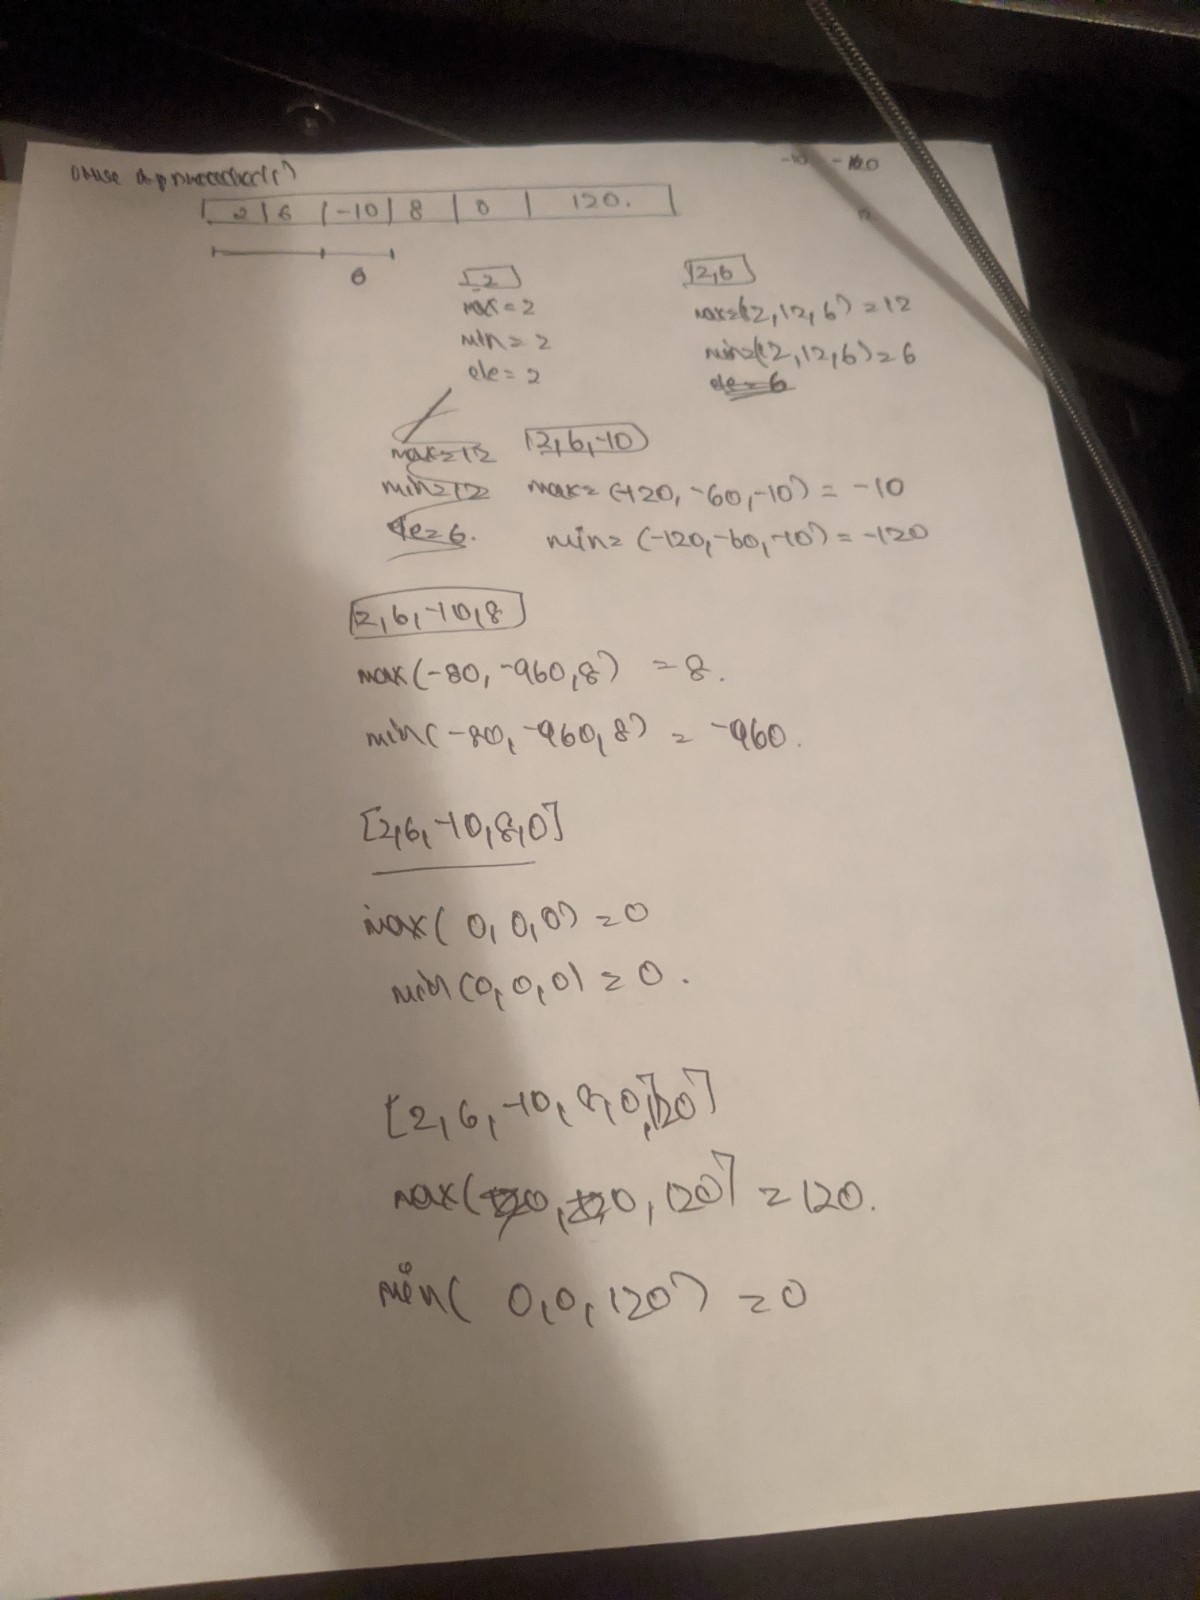 -10 -120
2 | 6 | -10 | 8 | 0 | 120.
6
[2]
max = 2
min = 2
ele = 2
[2,6]
max=(12,12,6) = 12
min=(12,12,6) = 6
ele = 6
max=12
min=12
ele=6.
[2,6,-10]
max= (-120, -60, -10) = -10
min= (-120, -60, -10) = -120
[2,6,-10,8]
max(-80, -960, 8) = 8.
min(-80, -960, 8) = -960.
[2,6,-10,8,0]
max( 0, 0, 0) = 0
min(0, 0, 0) = 0.
[2, 6, -10, 8, 0, 120]
max(0, 0, 120] = 120.
min( 0, 0, 120) = 0